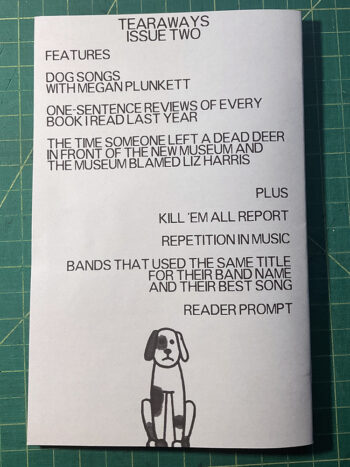 TEARAWAYS
ISSUE TWO
FEATURES
DOG SONGS
WITH MEGAN PLUNKETT
ONE-SENTENCE REVIEWS OF EVERY
BOOK I READ LAST YEAR
THE TIME SOMEONE LEFT A DEAD DEER
IN FRONT OF THE NEW MUSEUM AND
THE MUSEUM BLAMED LIZ HARRIS
PLUS
KILL 'EM ALL REPORT
REPETITION IN MUSIC
BANDS THAT USED THE SAME TITLE
FOR THEIR BAND NAME
AND THEIR BEST SONG
READER PROMPT